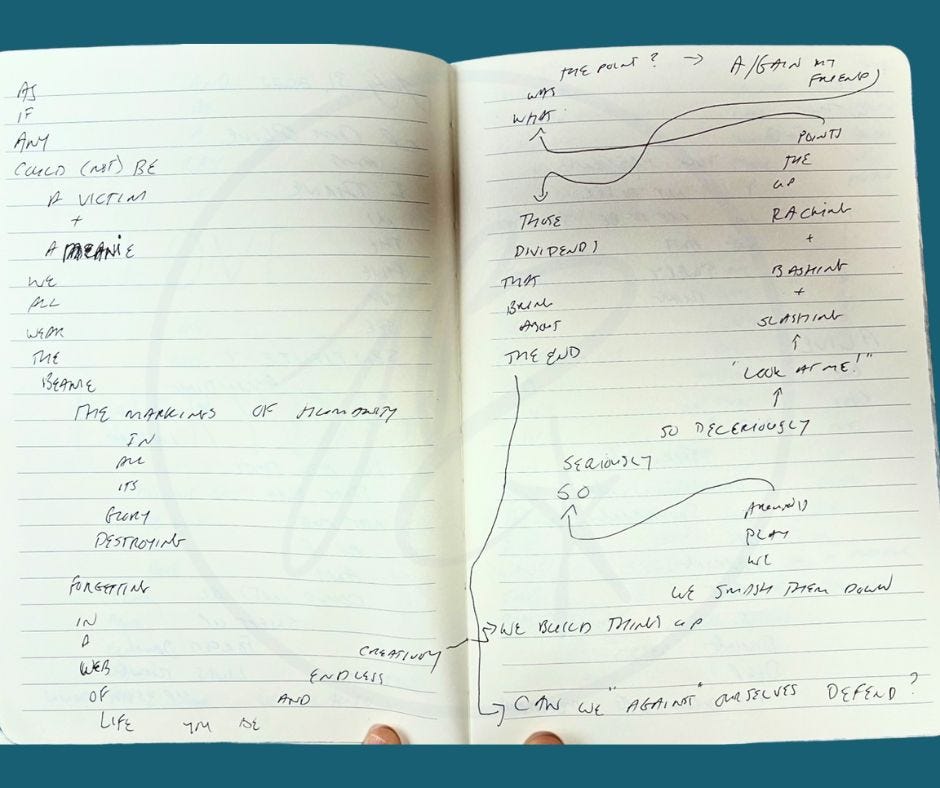 AS
IF
ANY
COULD (NOT) BE
A VICTIM
+
A MEANIE
WE
ALL
WEAR
THE
BEANIE
THE MARKINGS OF HUMANITY
IN
ALL
ITS
GLORY
DESTROYING
FORGETTING
IN
A
WEB
OF
LIFE YOU BE
AND
ENDLESS
CREATIVITY
WE BUILD THINGS UP
WE SMASH THEM DOWN
WE
PLAY
AROUND
SO
SERIOUSLY
SO DECERIOUSLY
"LOOK AT ME!"
SLASHING
+
BASHING
+
RACKING
UP
THE
POINTS
WHAT
WAS
THE POINT? → A/GAIN MY
FRIEND
THOSE
DIVIDENDS
THAT
BRING
ABOUT
THE END
CAN WE "AGAINST" OURSELVES DEFEND?